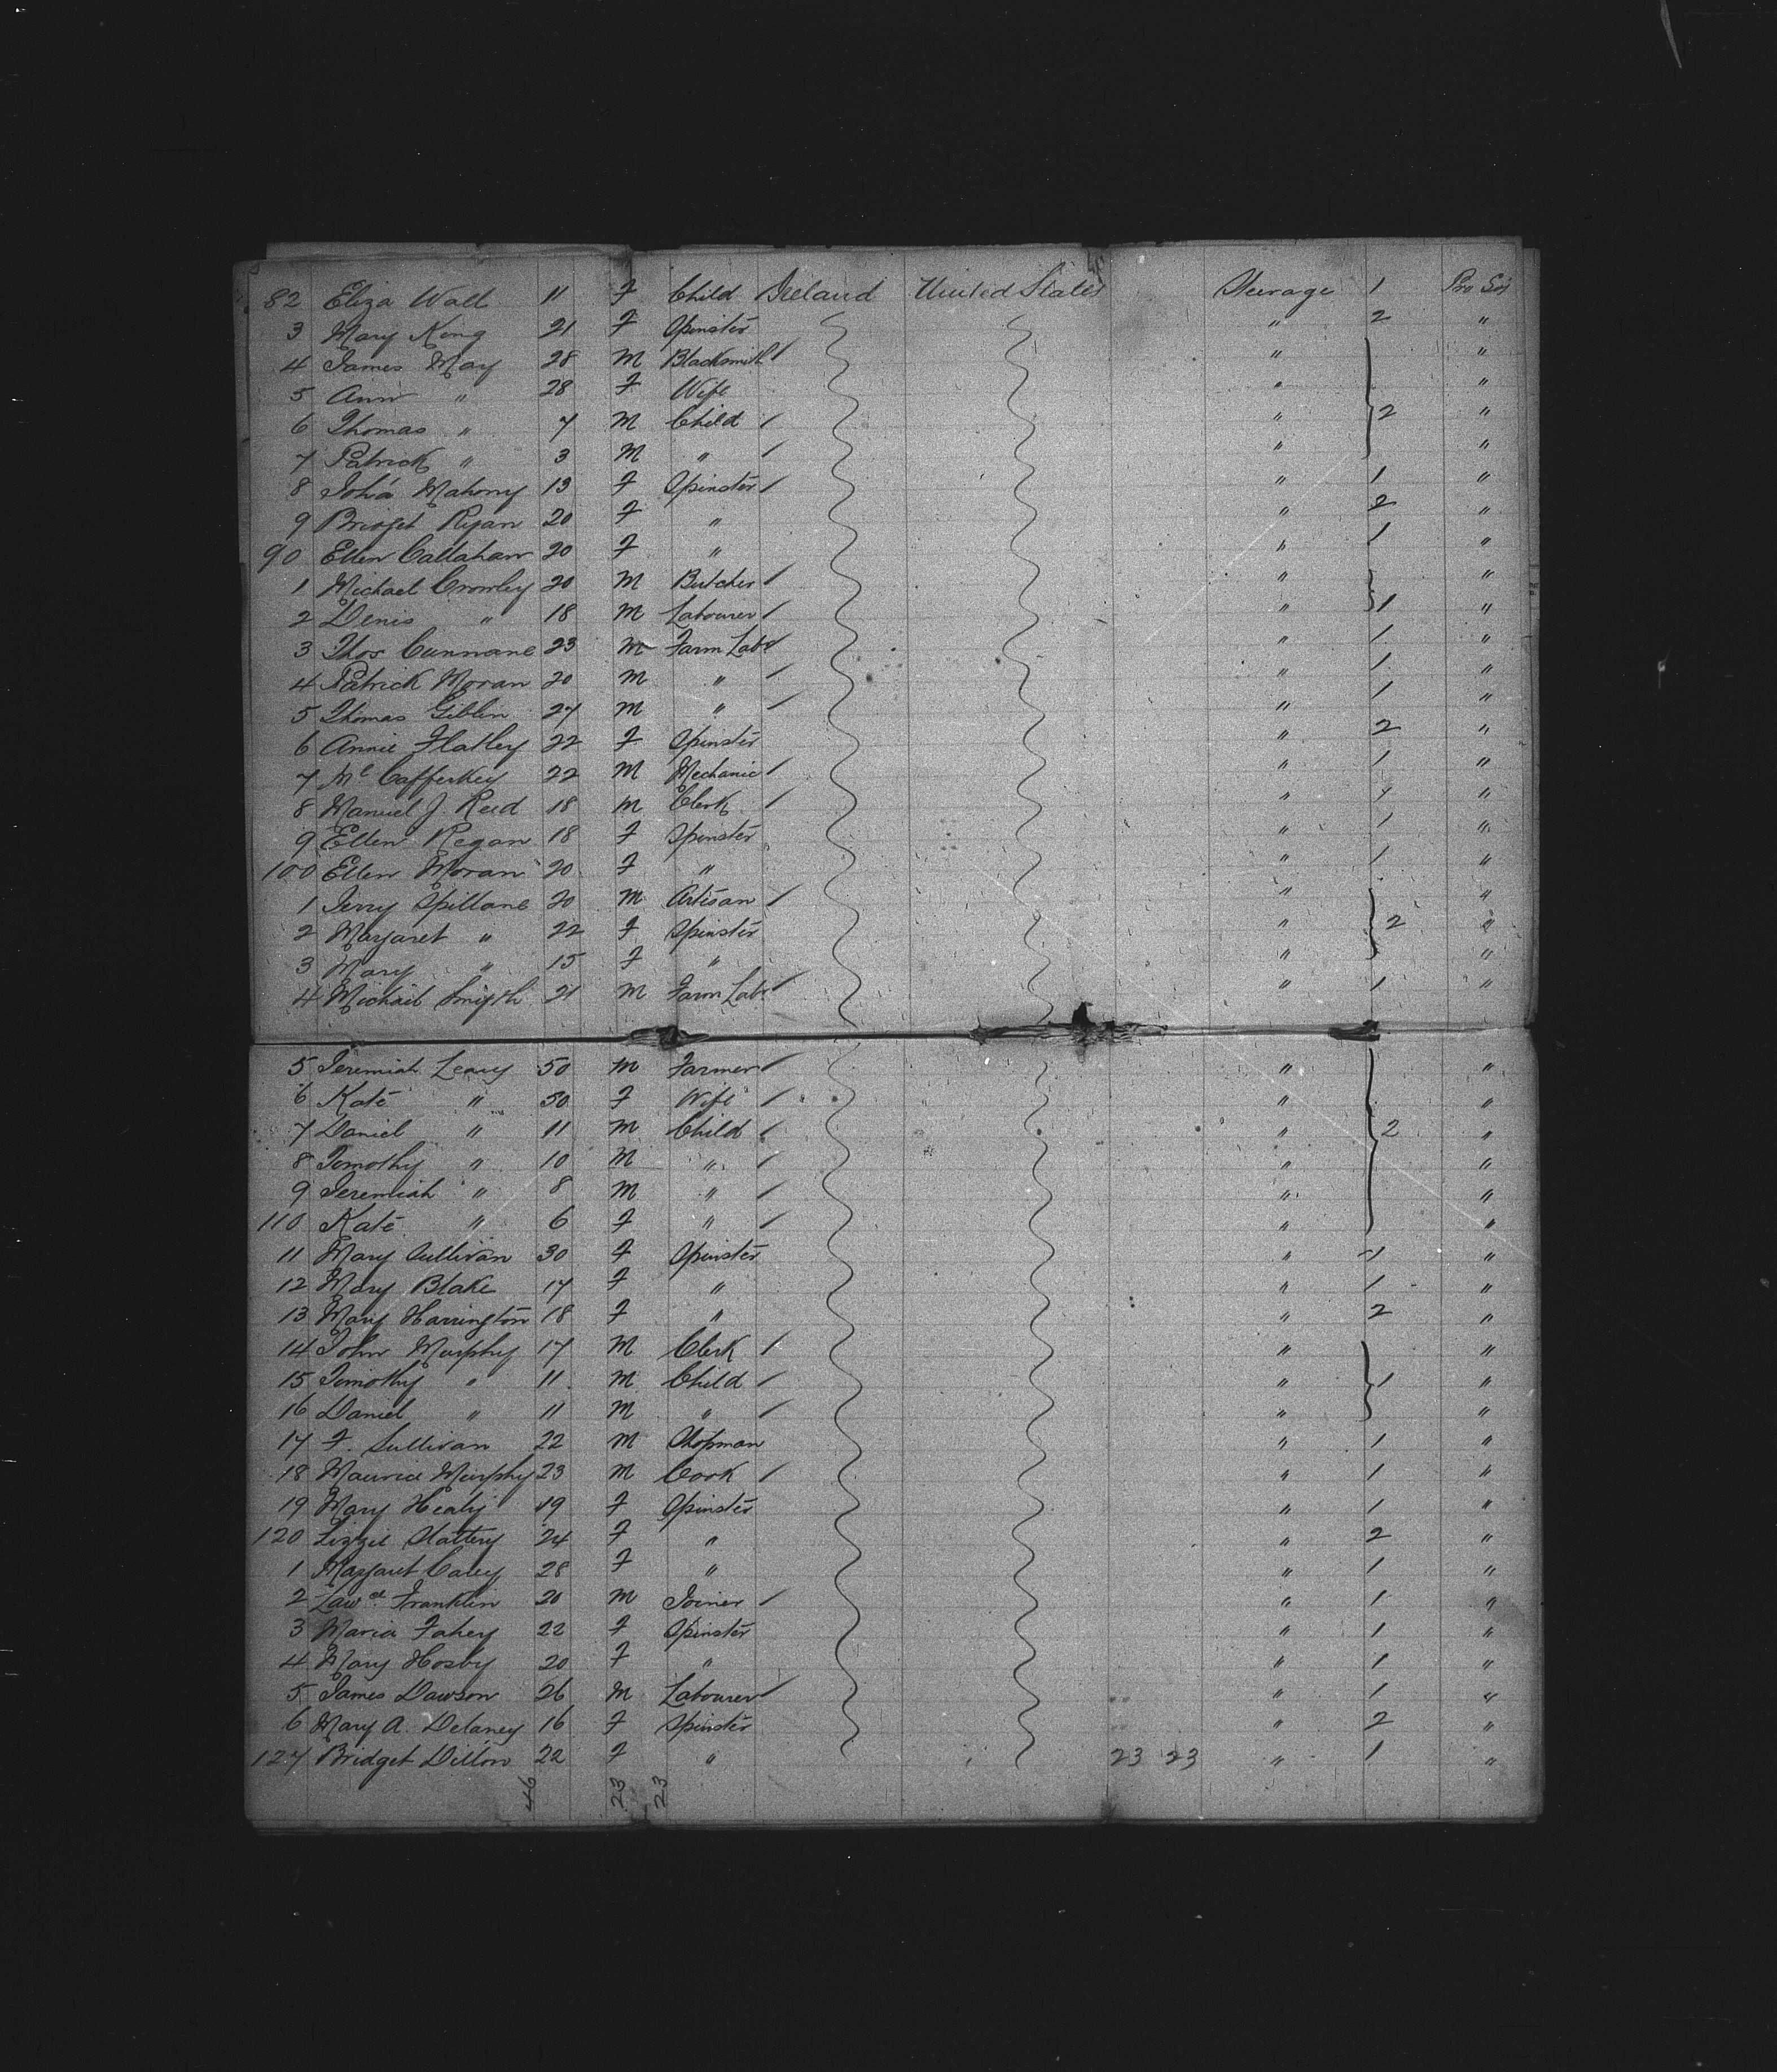 82 Eliza Wall 11 F Child Ireland United States Steerage 1 Pro Soj
3 Mary Kong 21 F Spinster " 2 "
4 James May 28 M Blacksmith / " "
5 Ann " 28 F Wife " "
6 Thomas " 7 M Child / " 2 "
7 Patrick " 3 M " / " "
8 Joh'a Mahony 13 F Spinster / " 1 "
9 Bridget Ryan 20 F " " 2 "
90 Ellen Callahan 20 F " " 1 "
1 Michael Crowley 20 M Butcher / " "
2 Denis " 18 M Labourer / " 1 "
3 Thos Cunnane 23 M Farm Labr / " 1 "
4 Patrick Moran 20 M " / " 1 "
5 Thomas Giblin 27 M " / " 1 "
6 Annie Flatley 22 F Spinster " 2 "
7 Mc Cafferkey 22 M Mechanic / " 1 "
8 Manuel J. Reid 18 M Clerk / " 1 "
9 Ellen Regan 18 F Spinster " 1 "
100 Ellen Moran 20 F " " 1 "
1 Jerry Spillane 20 M Artisan / " "
2 Margaret " 22 F Spinster " 2 "
3 Mary " 15 F " " "
4 Michael Smyth 21 M Farm Labr / " 1 "
5 Jeremiah Leary 50 M Farmer / " "
6 Kate " 50 F Wife / " "
7 Daniel " 11 M Child / " 2 "
8 Timothy " 10 M " / " "
9 Jeremiah " 8 M " / " "
110 Kate " 6 F " / " "
11 Mary Sullivan 30 F Spinster " 1 "
12 Mary Blake 17 F " " 1 "
13 Mary Harrington 18 F " " 2 "
14 John Murphy 17 M Clerk / " "
15 Timothy " 11 M Child / " 1 "
16 Daniel " 11 M " / " "
17 F. Sullivan 22 M Shopman " 1 "
18 Maurice Murphy 23 M Cook / " 1 "
19 Mary Healy 19 F Spinster " 1 "
120 Lizzie Slattery 24 F " " 2 "
1 Margaret Carey 28 F " " 1 "
2 Lawce Franklin 20 M Joiner / " 1 "
3 Maria Fahey 22 F Spinster " 1 "
4 Mary Hosby 20 F " " 1 "
5 James Dawson 26 M Labourer / " 1 "
6 Mary A. Delaney 16 F Spinster " 2 "
127 Bridget Dillon 22 F " 23 23 " 1 "
46 23 23